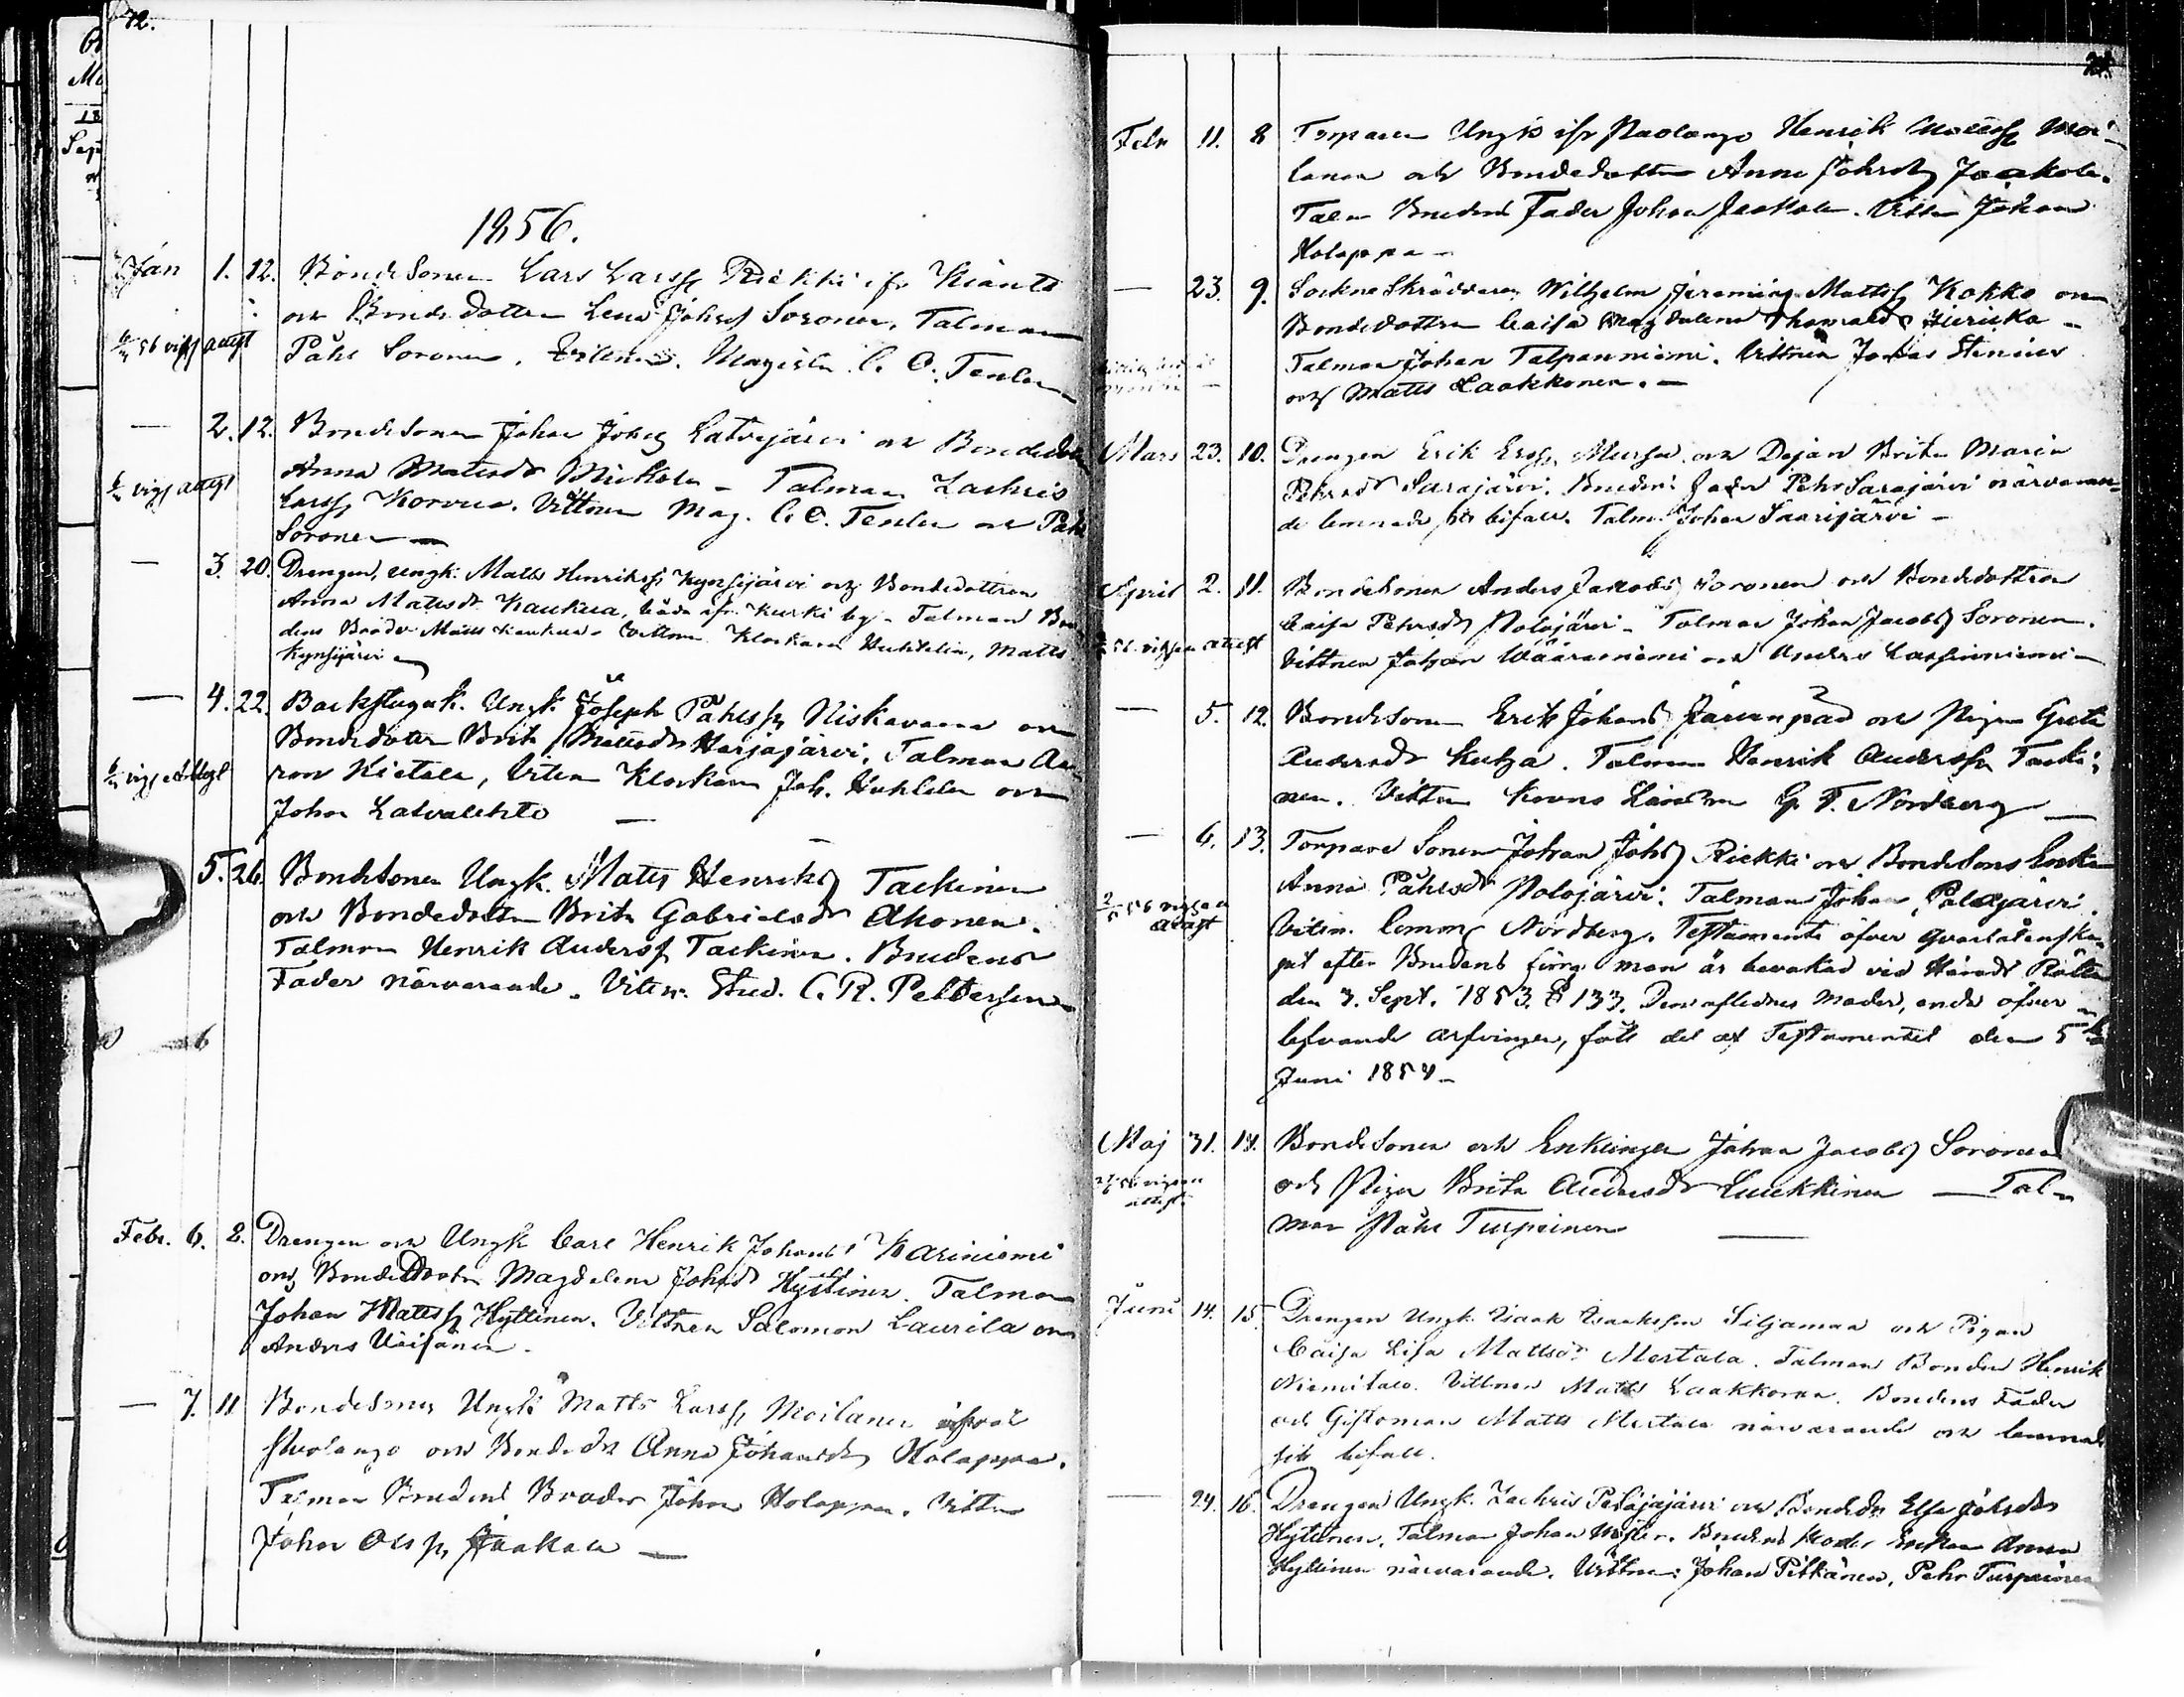 72.
1856.
Jan 1. 12. Bondesonen Lars Larss Riekki ifr Kianta
och Bonde dottern Lena Johsd Soronen, Talman
56 vigs attest Påhl Soronen, Vittnen. Magister C. O.
— 2. 12. Bondesonen Johan Johss Latvajärvi och Bonded
Anna Matsdr Mikkola – Talman Zachris
vigs attest Larss Korvua. Vittnen Mag. C. O. och Påhl
Soronen —
— 3. 20. Drengen, Ungk. Matts Henrikss Kynsijärvi och Bondedottren
Anna Matsdr Kaukua, båda ifr. Kurki by – Talman Bru
dens Broder Matts Kaukua – Vittnen Klockaren Huhtelin, Matts
Kynsijärvi
— 4. 22. Backstuguk. Ungk. Joseph Påhlss Niskavaara och
Bondedotter Brita Mattsdr Harjajärvi, Talman Aa
vigs attest ron Kietala, Vittn Klockaren Joh. Huhtelin och
Johan Latvalehto —
5. 26. Bondesonen Ungk. Matts Henriks Tackinen
och Bondedottern Brita Gabrielsdr Ahonen.
Talman Henrik Anderss Tackinen. Brudens
Fader närvarande. Vittn. Stud. C. R. Pettersson
Febr. 6. 8. Drengen och Ungk Carl Henrik Johans Kariniemi
och BondeDotter Magdalena Johsdr Hyttinen. Talman
Johan Mattss Hyttinen. Vittnen Salomon Laurila och
Anders Väisänen.
— 7. 11 Bondesonen Ungk Matts Larss Moilanen ifrån
Puolango och Bondedr Anna Johansdr Holappa.
Talman Brudens Broder Johan Holappa. Vittn
Johan Olss Jaakola —
Febr 11. 8 Torparen Ungk ifr Puolango Henrik Mattss Moi-
lanen och Bondedotter Anna Johsdr Jaakola.
Talm Brudens Fader Johan Jaakola. Vittn Johan
Holappa –
— 23. 9. SockneSkräddaren Wilhelm Jeremias Mattss Kokko och
Bondedottren Caisa Magdalena Thomasdr Juricka –
Talman Johan Talpanniemi. Vittnen Jonas Stenius
och Matts Laakkonen. —
Mars 23. 10. Drengen Erik Erss Mursu och Dejan Brita Maria
Pehrsdr Sarajärvi. Brudens Fader Pehr Sarajärvi närvaran-
de lemnade sitt bifall. Talm. Johan Saarijärvi –
April 2. 11. Bondesonen Anders Jacobs Soronen och Bondedottren
Caisa Petersdr Polojärvi – Talman Johan Jacobs Soronen.
56. vigsen attest Vittnen Johan Wääräniemi och Anders Lassinniemi –
— 5. 12. Bondesonen Erik Johans Järvenpää och Pigan Greta
Andersdr Kutja. Talman Henrik Anderss Tacki-
nen. Vittnen Krono Länsman G. F. Nordberg —
— 6. 13. Torpare Sonen Johan Johss Riekki och Bondesons Enkan
Anna Påhlsdr Polojärvi. Talman Johan Polojärvi.
56 vigsen attest Vittn. Comm. Nordberg. Testamente öfver qvarlåtenska-
pet efter Brudens förra man är bevakad vid Härads Rätten
den 3. Sept. 1853. § 133. Den aflednes moder, enda öfver-
lefvande arfvingen, fått del af Testamentet den 5
Juni 1854 –
Maj 31. 14. Bondesonen och Enklingen Johan Jacobs Soronen
vigsen attest. och Pigan Brita Andersdr Luukkinen — Tal-
man Påhl Turpeinen —
Juni 14. 15. Drengen Ungk. Isaak Isaaksson Siljamaa och Pigan
Caisa Lisa Mattsdr Mertala. Talman Bonden Henrik
Niemitalo. Vittnen Matts Laakkonen. Brudens Fader
och Giftoman Matts Mertala närvarande och lemnade
sitt bifall.
— 24. 16. Drengen Ungk. Zachris och Bondedr Elsa Johsdr
Hyttinen. Talman Johan. Brudens Moder Enkan Anna
Hyttinen närvarande. Vittnen: Johan Pitkänen, Pehr Turpeinen